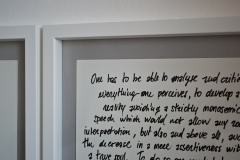 One has to be able to analyse and critic
everything one perceives, to develop a
nearly avoiding a strictly monosemic
speech which would not allow any rea
interpretation, but also and above all, avo
the decrease in a mere assertiveness with
a true soul. To do so